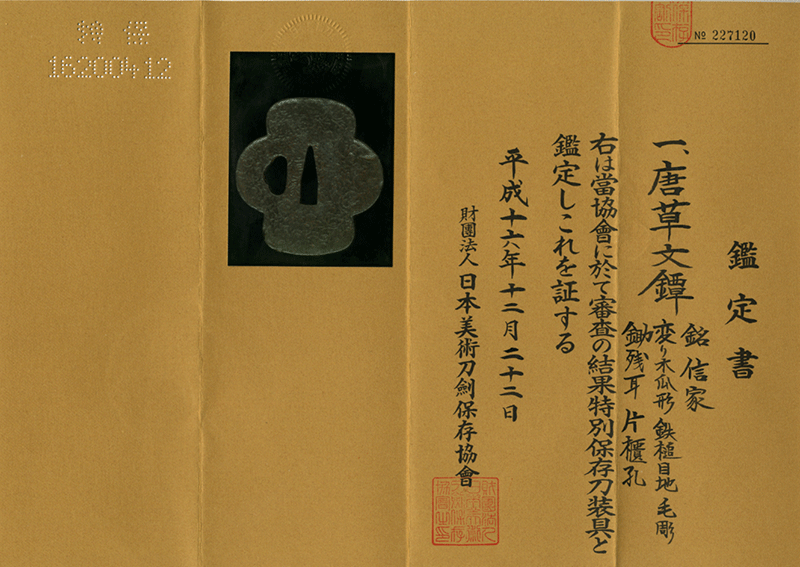 鑑定書
一、唐草文鐔
銘 信家
変り木瓜形 鉄槌目地 毛彫
鋤残耳 片櫃孔
右は當協會に於て審査の結果特別保存刀装具と
鑑定しこれを証する
平成十六年十二月二十二日
財團法人 日本美術刀劍保存協會
№ 227120
特 保
16200412